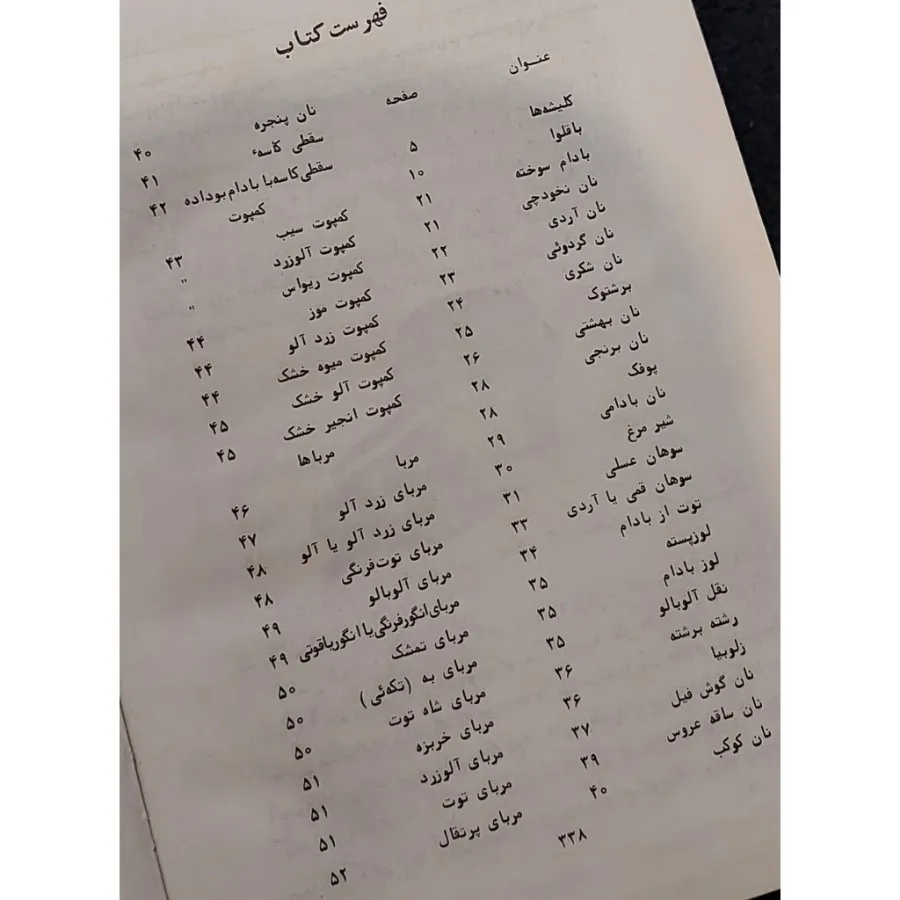 فهرست کتاب
عنوان صفحه
کلیشه‌ها ۵
باقلوا ۱۰
بادام سوخته ۲۱
نان نخودچی ۲۱
نان آردی ۲۲
نان گردوئی ۲۳
نان شکری ۲۴
برشتوک ۲۵
نان بهشتی ۲۶
نان برنجی ۲۸
پوفک ۲۸
نان بادامی ۲۹
شیر مرغ ۳۰
سوهان عسلی ۳۱
سوهان قمی یا آردی ۳۳
توت از بادام ۳۴
لوزپسته ۳۵
لوز بادام ۳۵
نقل آلوبالو ۳۵
رشته برشته ۳۶
زلوبیا ۳۶
نان گوش فیل ۳۷
نان ساقه عروس ۳۹
نان کوکب ۴۰
نان پنجره ۴۰
سقطی کاسهٔ ۴۱
سقطی کاسه با بادام بوداده ۴۲
کمپوت
کمپوت سیب ۴۳
کمپوت آلوزرد "
کمپوت ریواس "
کمپوت موز ۴۴
کمپوت زرد آلو ۴۴
کمپوت میوه خشک ۴۴
کمپوت آلو خشک ۴۵
کمپوت انجیر خشک ۴۵
مرباها
مربا ۴۶
مربای زرد آلو ۴۷
مربای زرد آلو یا آلو ۴۸
مربای توت‌فرنگی ۴۸
مربای آلوبالو ۴۹
مربای انگورفرنگی یا انگوریاقوتی ۴۹
مربای تمشک ۵۰
مربای به (تکه‌ئی) ۵۰
مربای شاه توت ۵۰
مربای خربزه ۵۱
مربای آلوزرد ۵۱
مربای توت ۵۱
مربای پرتقال ۵۲
۳۳۸